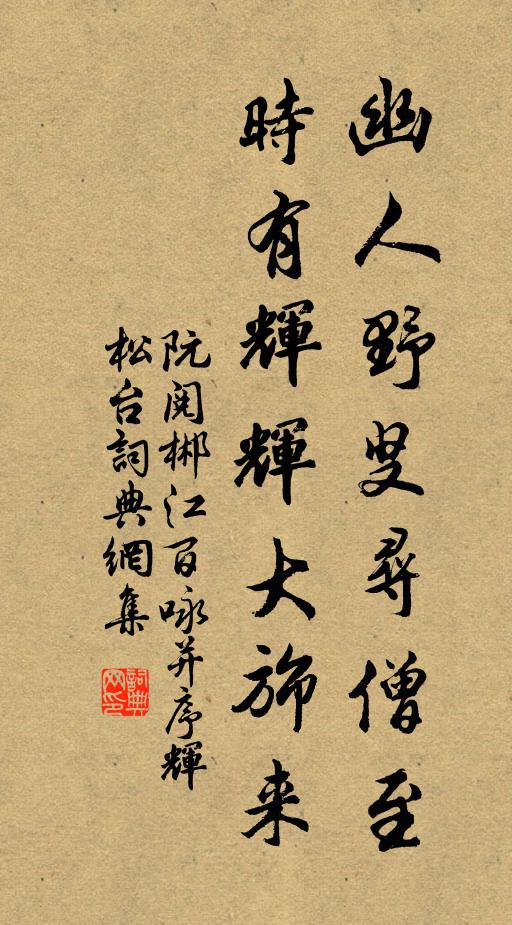 幽人野叟尋僧至
時有輝輝大旆来
阮閱郴江百咏并序輝
松台詞典網集
詞典
网印